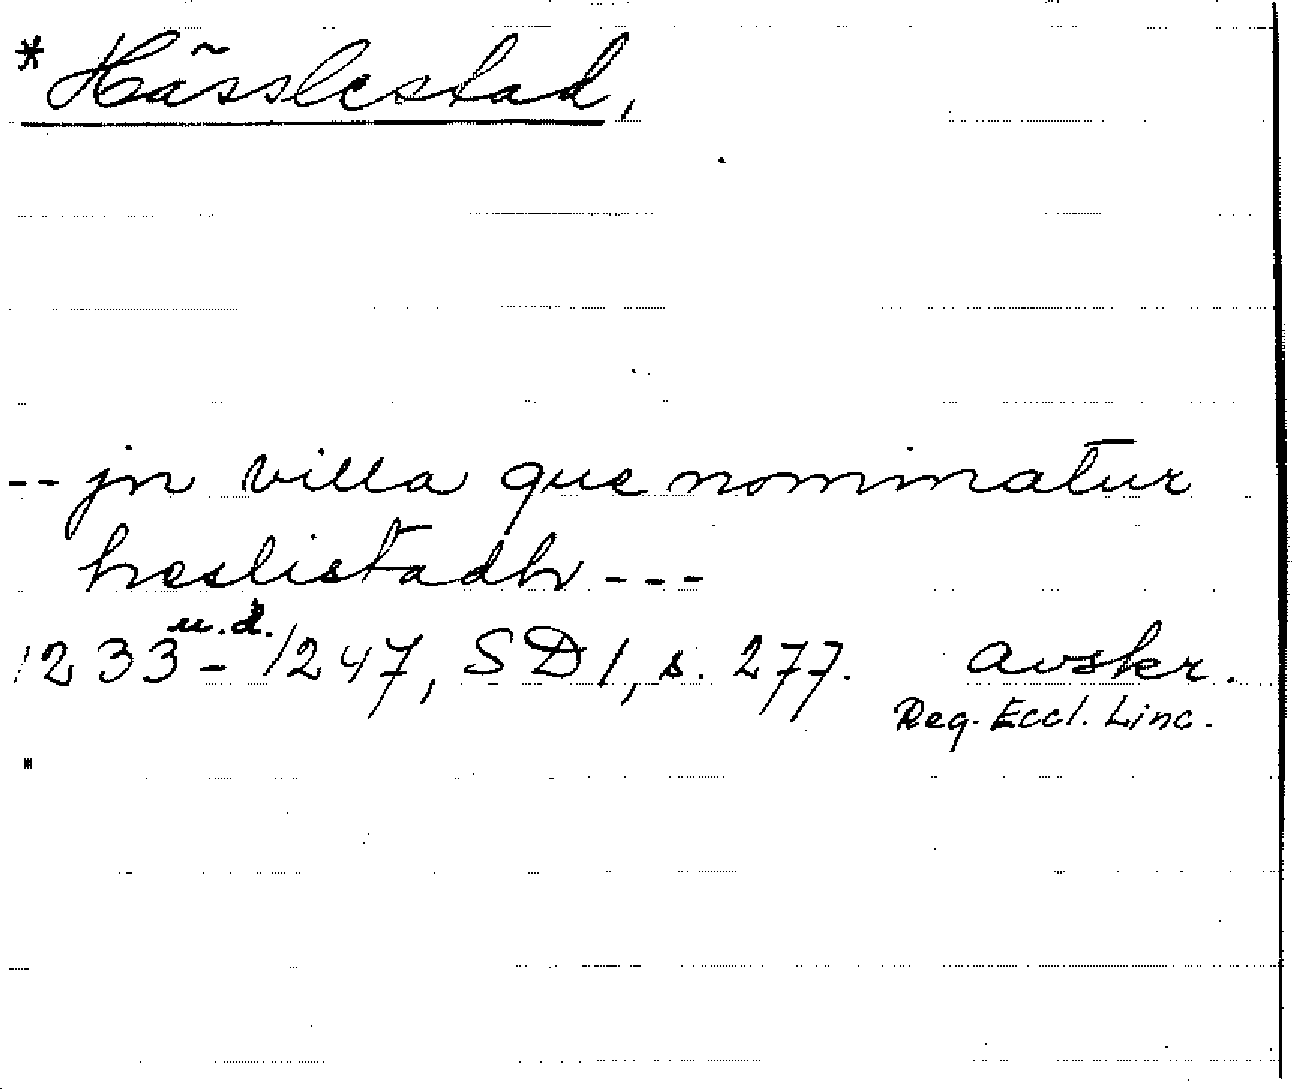 *Hässlestad,
-- jn villa que nominatur
heslistadh ---
1233 - u.d. 1247, SD 1, s. 277. avskr.
Reg. Eccl. Linc.